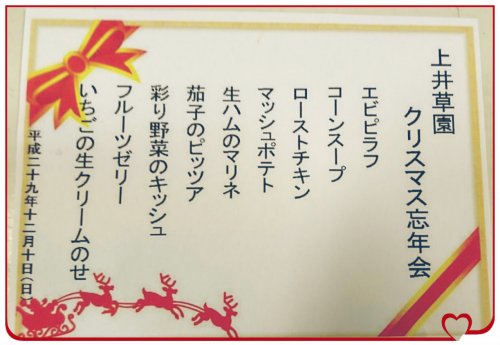 上井草園
クリスマス忘年会
エビピラフ
コーンスープ
ローストチキン
マッシュポテト
生ハムのマリネ
茄子のピッツア
彩り野菜のキッシュ
フルーツゼリー
いちごの生クリームのせ
平成二十九年十二月十日(日)